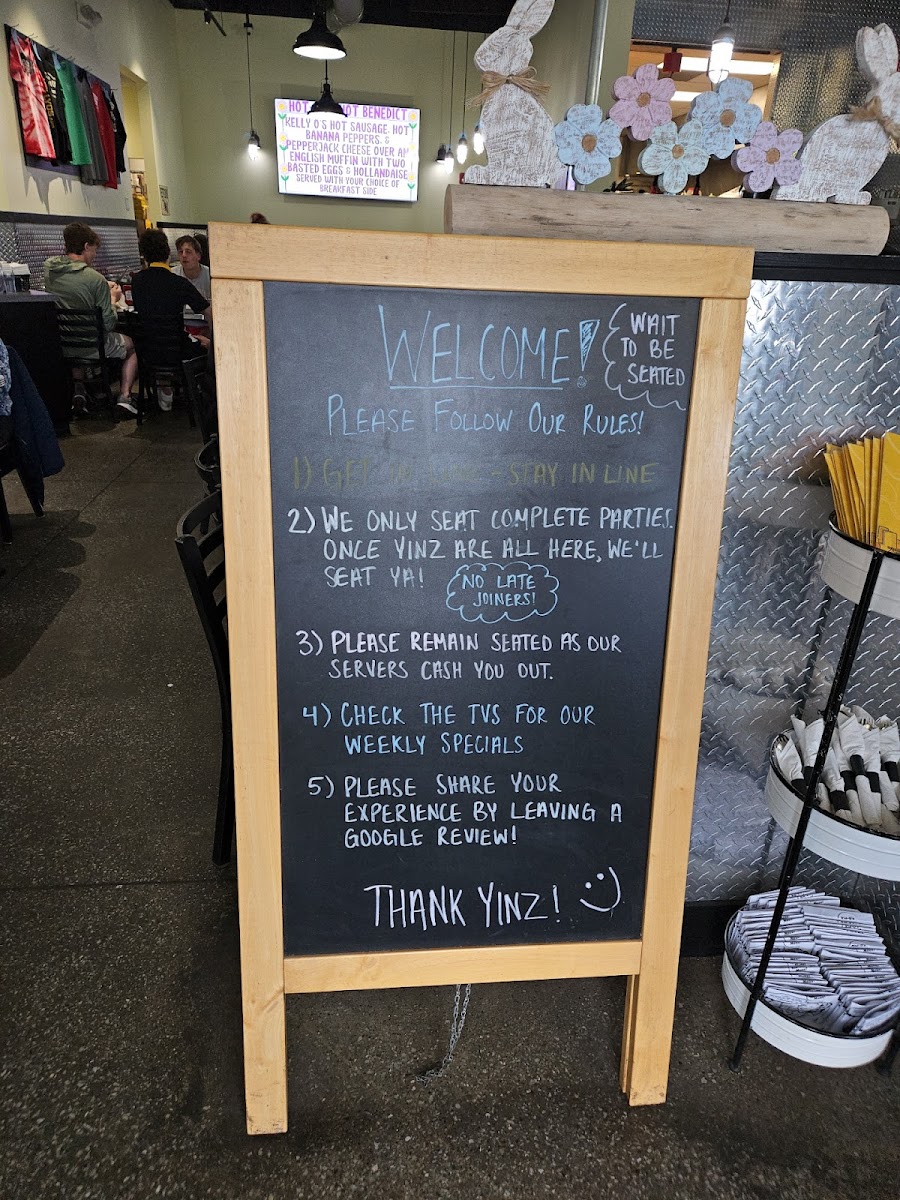 HOT HOT BENEDICT
KELLY O'S HOT SAUSAGE, HOT
BANANA PEPPERS, &
PEPPERJACK CHEESE OVER AN
ENGLISH MUFFIN WITH TWO
BASTED EGGS & HOLLANDAISE
SERVED WITH YOUR CHOICE OF
BREAKFAST SIDE
WELCOME!
WAIT
TO BE
SEATED
PLEASE FOLLOW OUR RULES!
1) GET IN LINE - STAY IN LINE
2) WE ONLY SEAT COMPLETE PARTIES.
ONCE YINZ ARE ALL HERE, WE'LL
SEAT YA!
NO LATE
JOINERS!
3) PLEASE REMAIN SEATED AS OUR
SERVERS CASH YOU OUT.
4) CHECK THE TVS FOR OUR
WEEKLY SPECIALS
5) PLEASE SHARE YOUR
EXPERIENCE BY LEAVING A
GOOGLE REVIEW!
THANK YINZ! :)